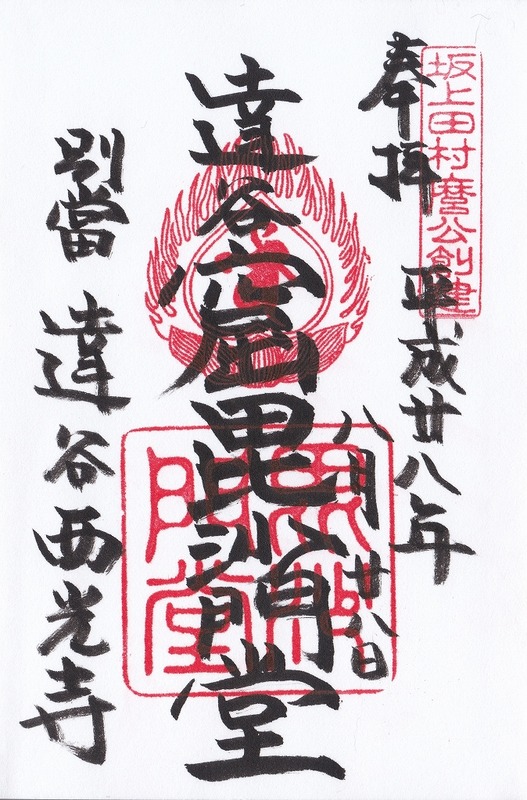 坂上田村麿公創建
奉拝 平成廿八年
八月廿八日
達谷窟毘沙門堂
毘沙門堂
別當 達谷西光寺